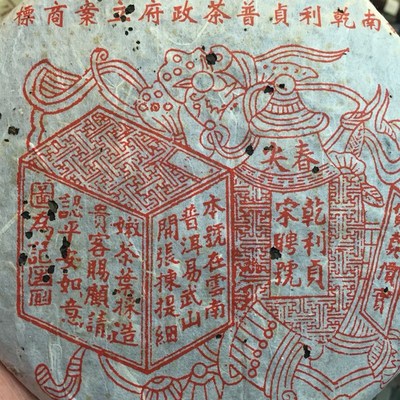 南乾利貞普茶政府立案商標
春尖
乾利貞
宋聘號
本號在雲南
普洱易武山
開張揀提細
嫩茶葉採造
貴客賜顧請
認平安如意
圖為記